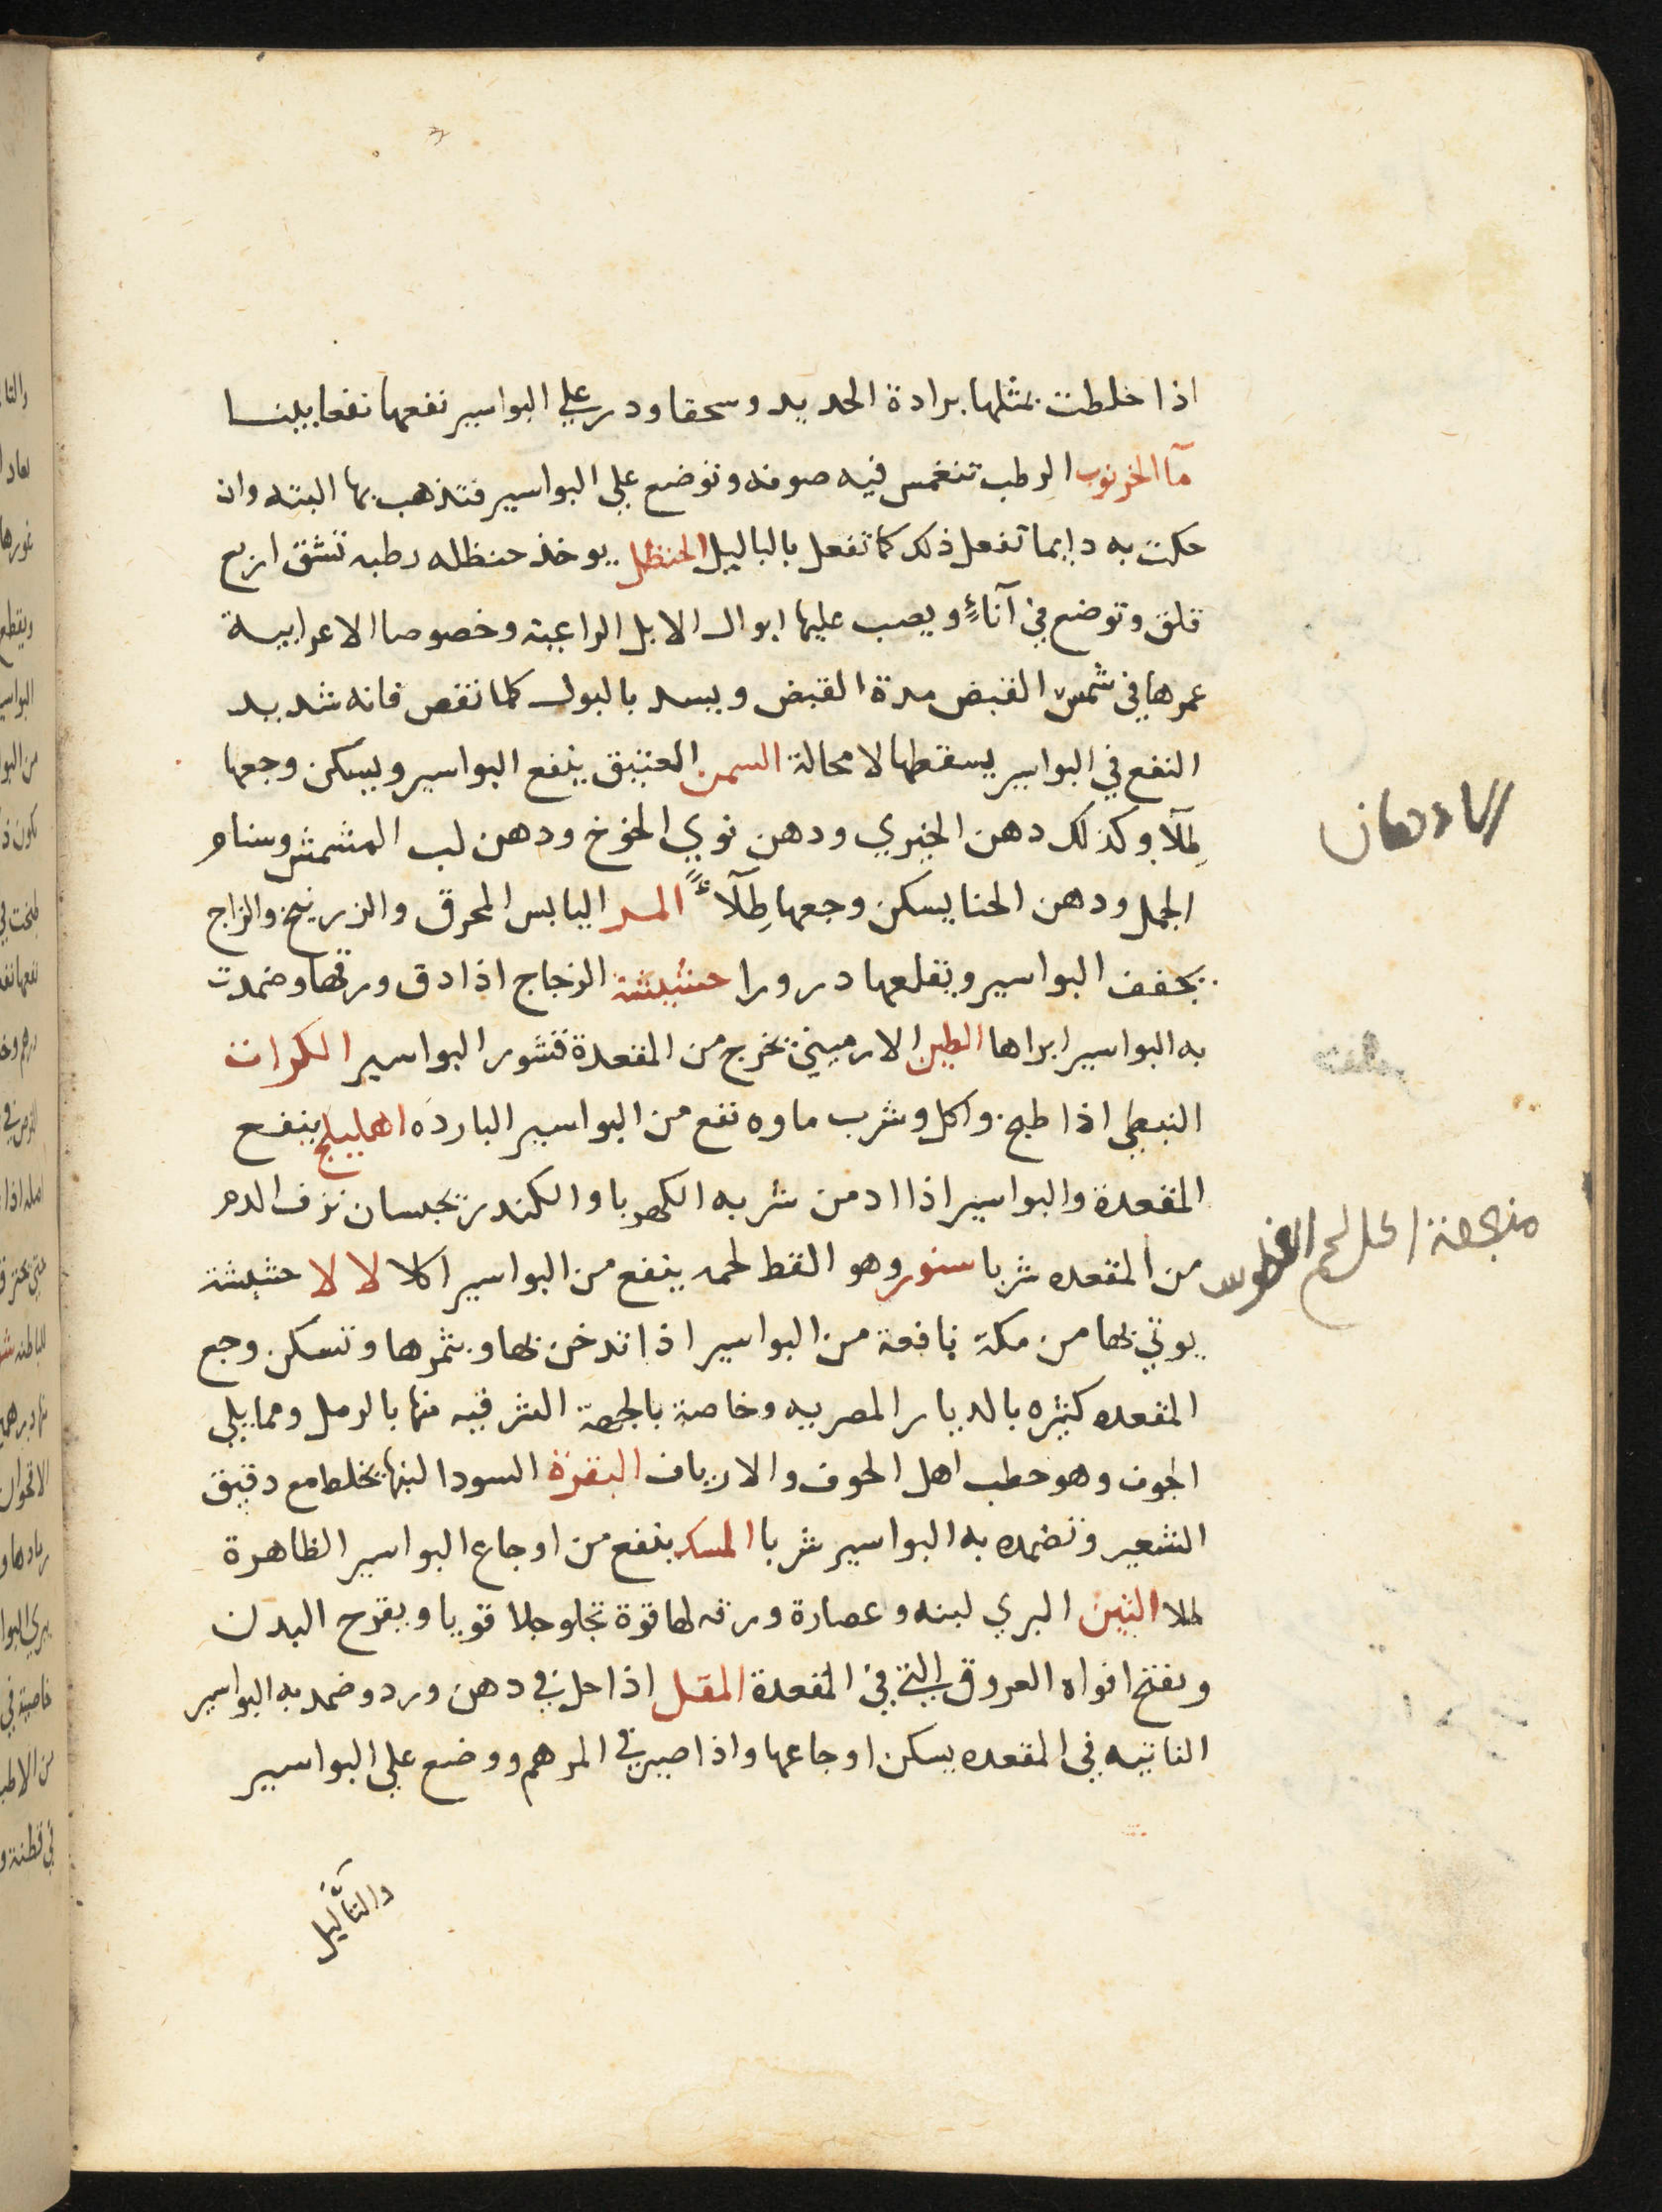 اذا خلطت بمثلها برادة الحديد وسحقا ودر علي البواسير نفعها نفعا بينا
مآ الخرنوب الرطب تنغمس فيه صوفه وتوضع علي البواسير فتذهب بها البته وان
حكت به دايما تفعل ذلك كما تفعل بالباليل الحنظل يوخذ حنظله رطبه تشق اربع
فلق وتوضع في آناءٍ ويصب عليها ابوال الابل الراعيه وخصوصا الاعرابية
عمرها في شمس القيض مدة القيض ويسد بالبول كلما نقص فانه شديد
النفع في البواسير يسقطها لا محالة السمن العتيق ينفع البواسير ويسكن وجعها
طِلآ وكذلك دهن الخيري ودهن نوي الخوخ ودهن لب المشمش وسنام
الجمل ودهن الحنا يسكن وجعها طِلآءً المر اليابس المحرق والزرنيخ والزاج
يجفف البواسير ويقلعها درورا حشيشة الزجاج اذا دق ورقها وضمدت
به البواسير ابراها الطين الارميني يخرج من المقعدة قشور البواسير الكراث
النبطي اذا طبخ واكل وشرب ماوه نفع من البواسير البارده اهليلج ينفع
المقعدة والبواسير اذا ادمن شربه الكهربا والكندر يحبسان نزف الدم
من المقعده شربا سنور وهو القط لحمه ينفع من البواسير اكلا لا لا حشيشة
يوتي بها من مكة نافعة من البواسير اذا تدخن بها وبثمرها وتسكن وجع
المقعده كثيره بالديار المصريه وخاصة بالجهة الشرقيه منها بالرمل ومما يلي
الجوف وهو حطب اهل الحوف والارياف البقرة السودا لبنها يخلط مع دقيق
الشعير وتضمده به البواسير شربا المسك ينفع من اوجاع البواسير الظاهرة
طلا التين البري لبنه وعصارة ورقه لها قوة تجلو جلا قويا ويقرح البدن
ويفتح افواه العروق التي في المقعدة المقل اذا حل في دهن ورد وضمد به البواسير
الناتيه في المقعده يسكن اوجاعها واذا صير في المرهم ووضع علي البواسير
والتآليل
الادهان
اكل لحم